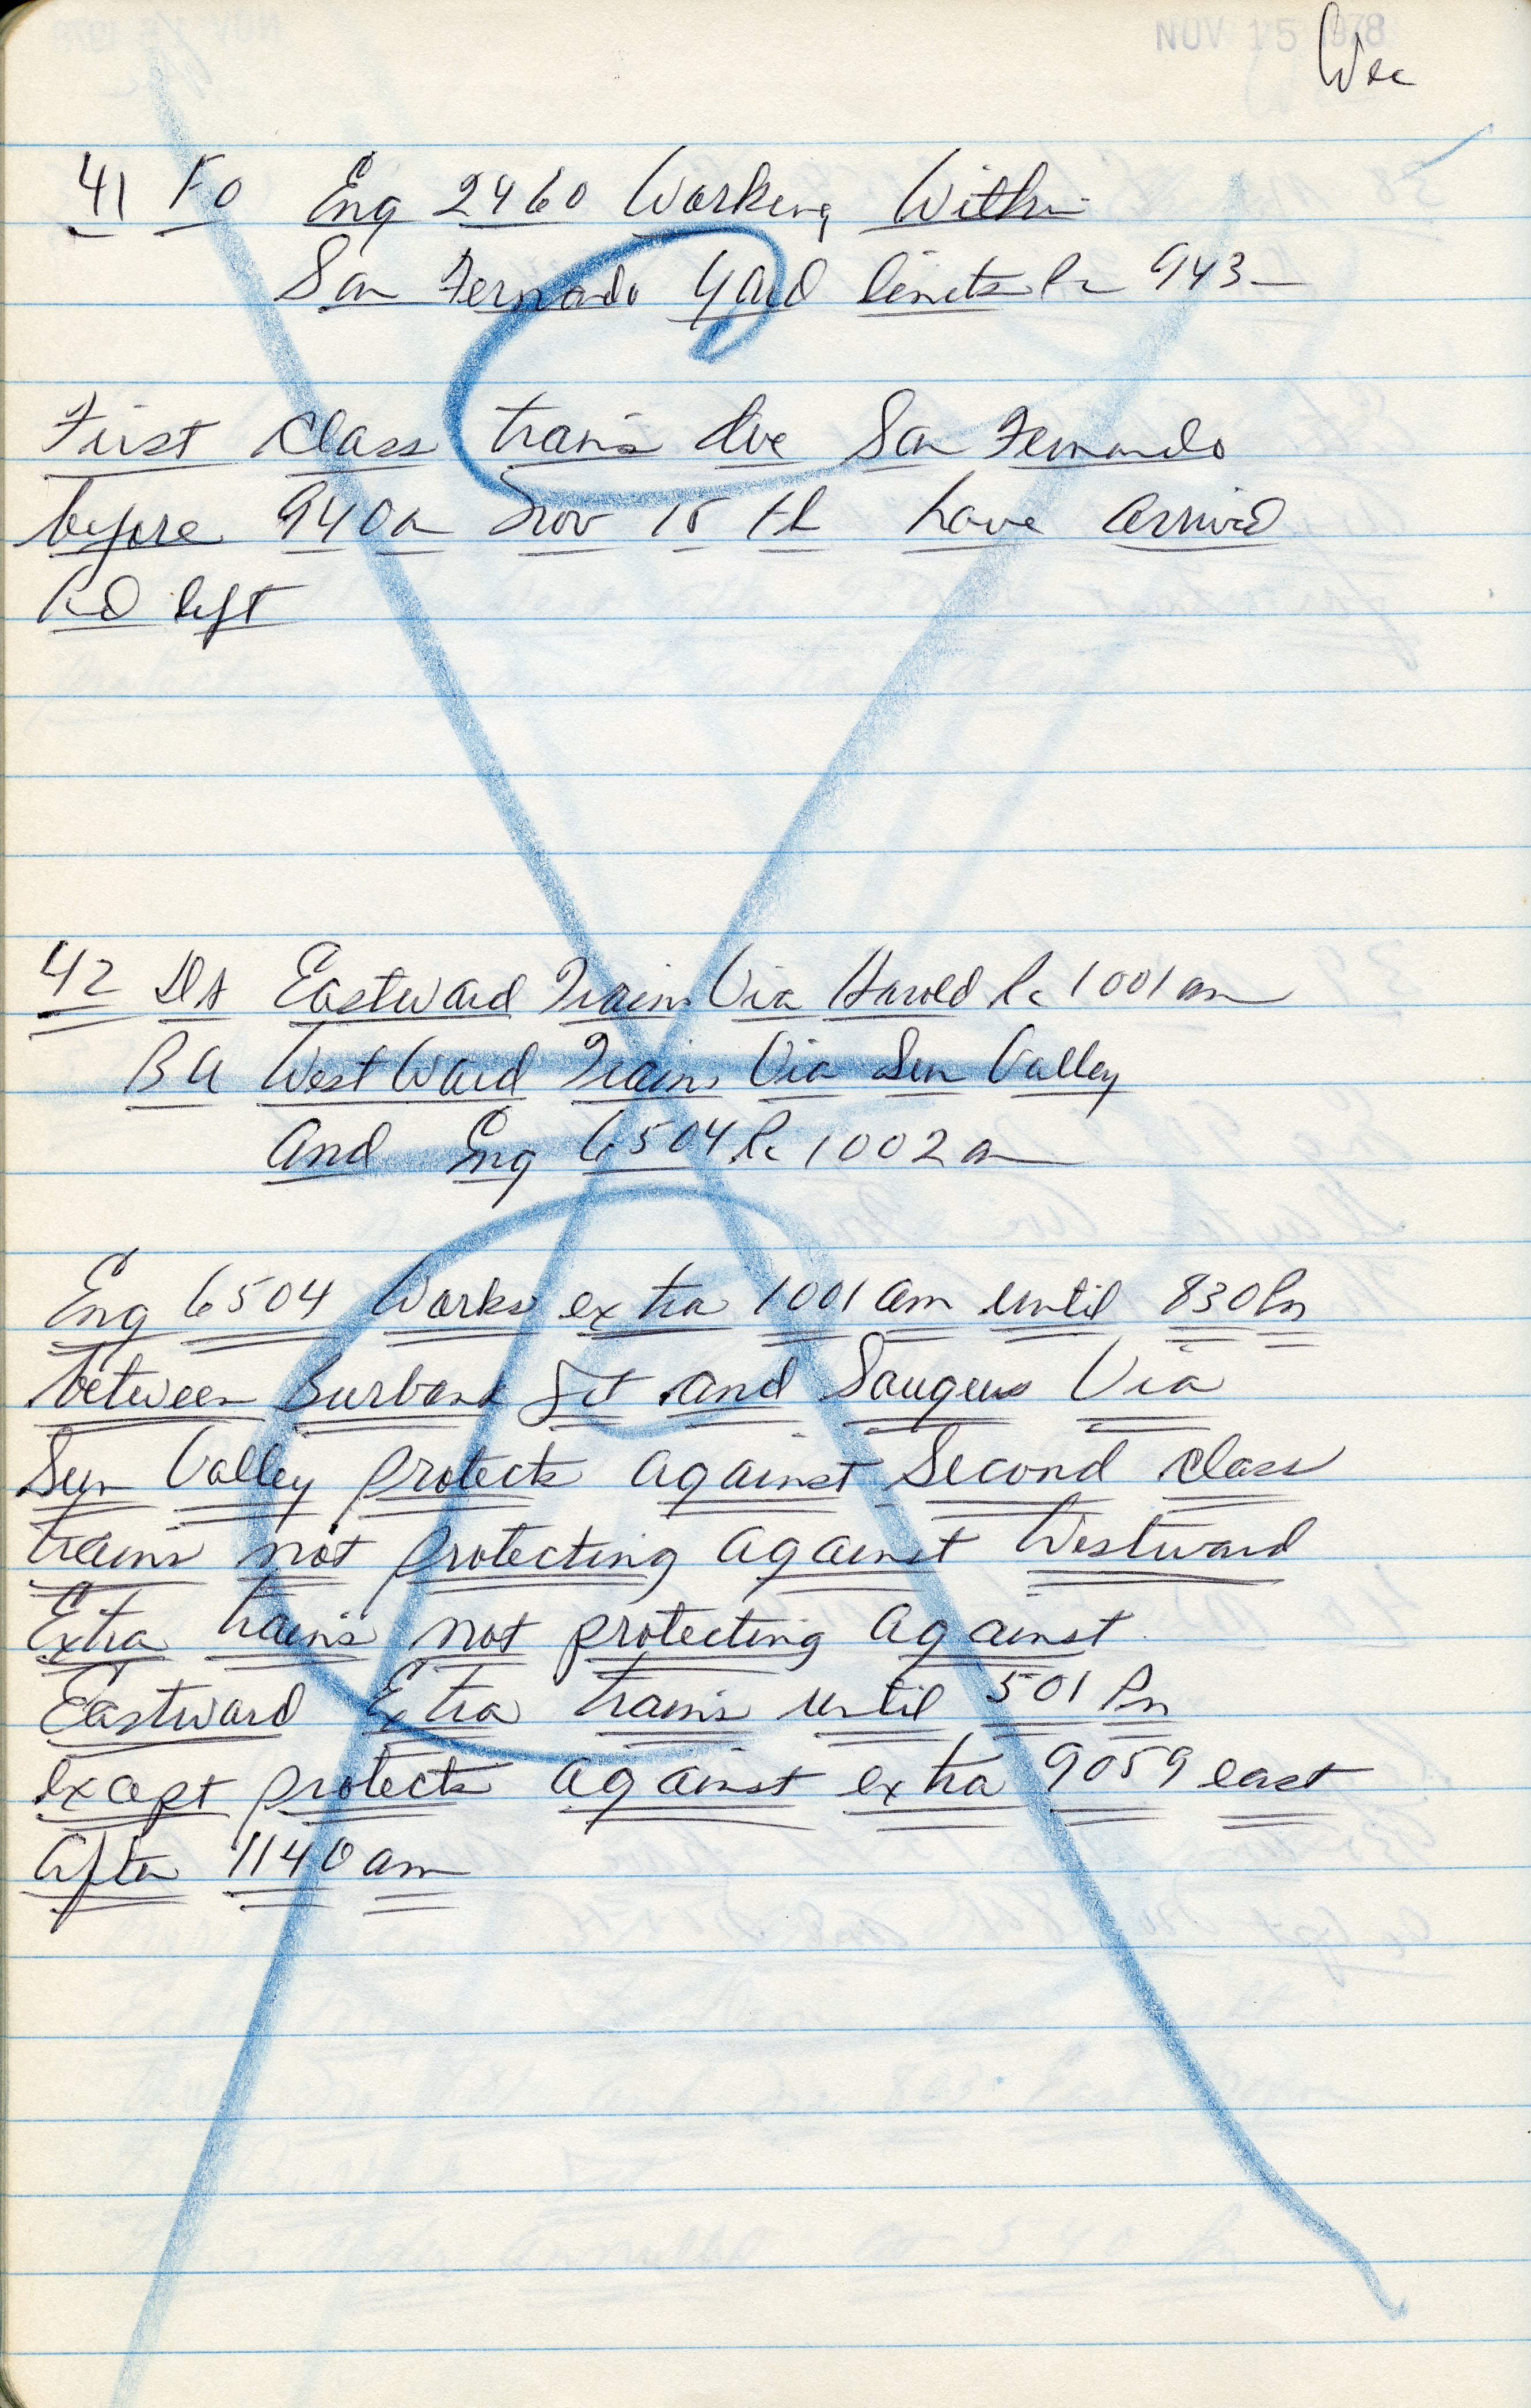 NOV 15 1978
Wee
41 Fo Eng 2460 Working Within
San Fernando Yard limits 943
First Class trains due San Fernando
before 940a Nov 15 th have arrived
And left
42 Ds Eastward Trains Via Harold 1001 am
BU WestWard Trains Via Sun Valley
And Eng 6504 1002 a
Eng 6504 Works extra 1001 am until 830 Pm
between Burbank Jct and Saugus Via
Sun Valley protects against Second Class
trains not protecting against Westward
Extra trains not protecting against
Eastward Extra trains until 501 Pm
except protects against extra 9059 east
After 1140 am